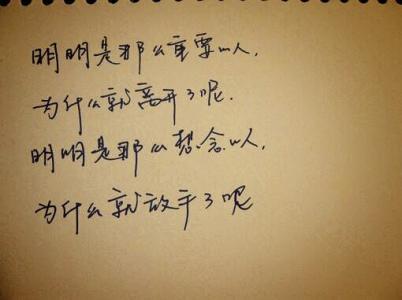 明明是那么重要的人，
为什么就离开了呢.
明明是那么想念的人，
为什么就放手了呢